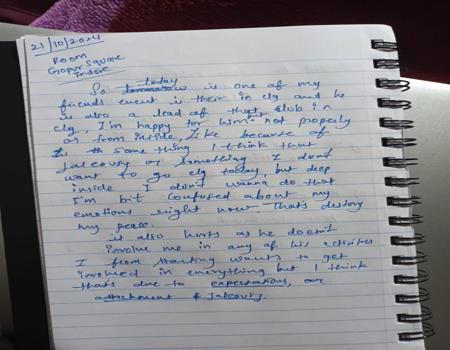 21/10/2024
Room
Gopur Square
Indore
So tomorrow today is one of my
friends event is their in clg and he
is also a lead of that club in
clg, I'm happy for him but not properly
or from inside, Like because of
some thing I think that
jealousy or something I don't
want to go clg today, but deep
inside I don't wanna do that
I'm bit confused about my
emotions right now. That's destroy
my peace.
it also hurts as he doesn't
involve me in any of his activities
I from starting wants to get
involved in everything but I think
that's due to expectations, or
attachment & Jealousy.